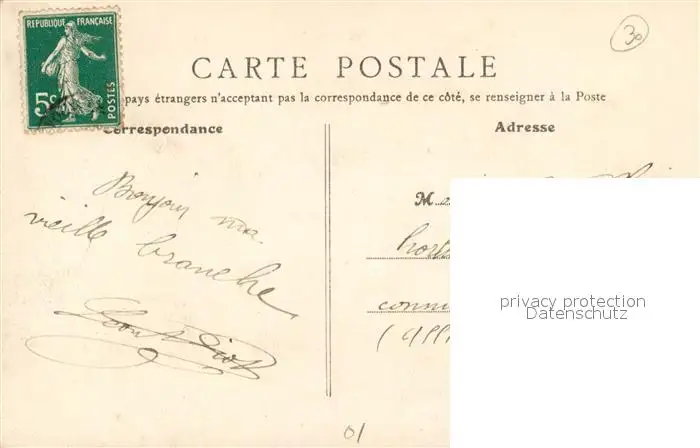 REPUBLIQUE FRANÇAISE
5c
POSTES
30
CARTE POSTALE
pays étrangers n'acceptant pas la correspondance de ce côté, se renseigner à la Poste
Correspondance
Adresse
Bonjour ma
vieille branche
M
01
privacy protection
Datenschutz